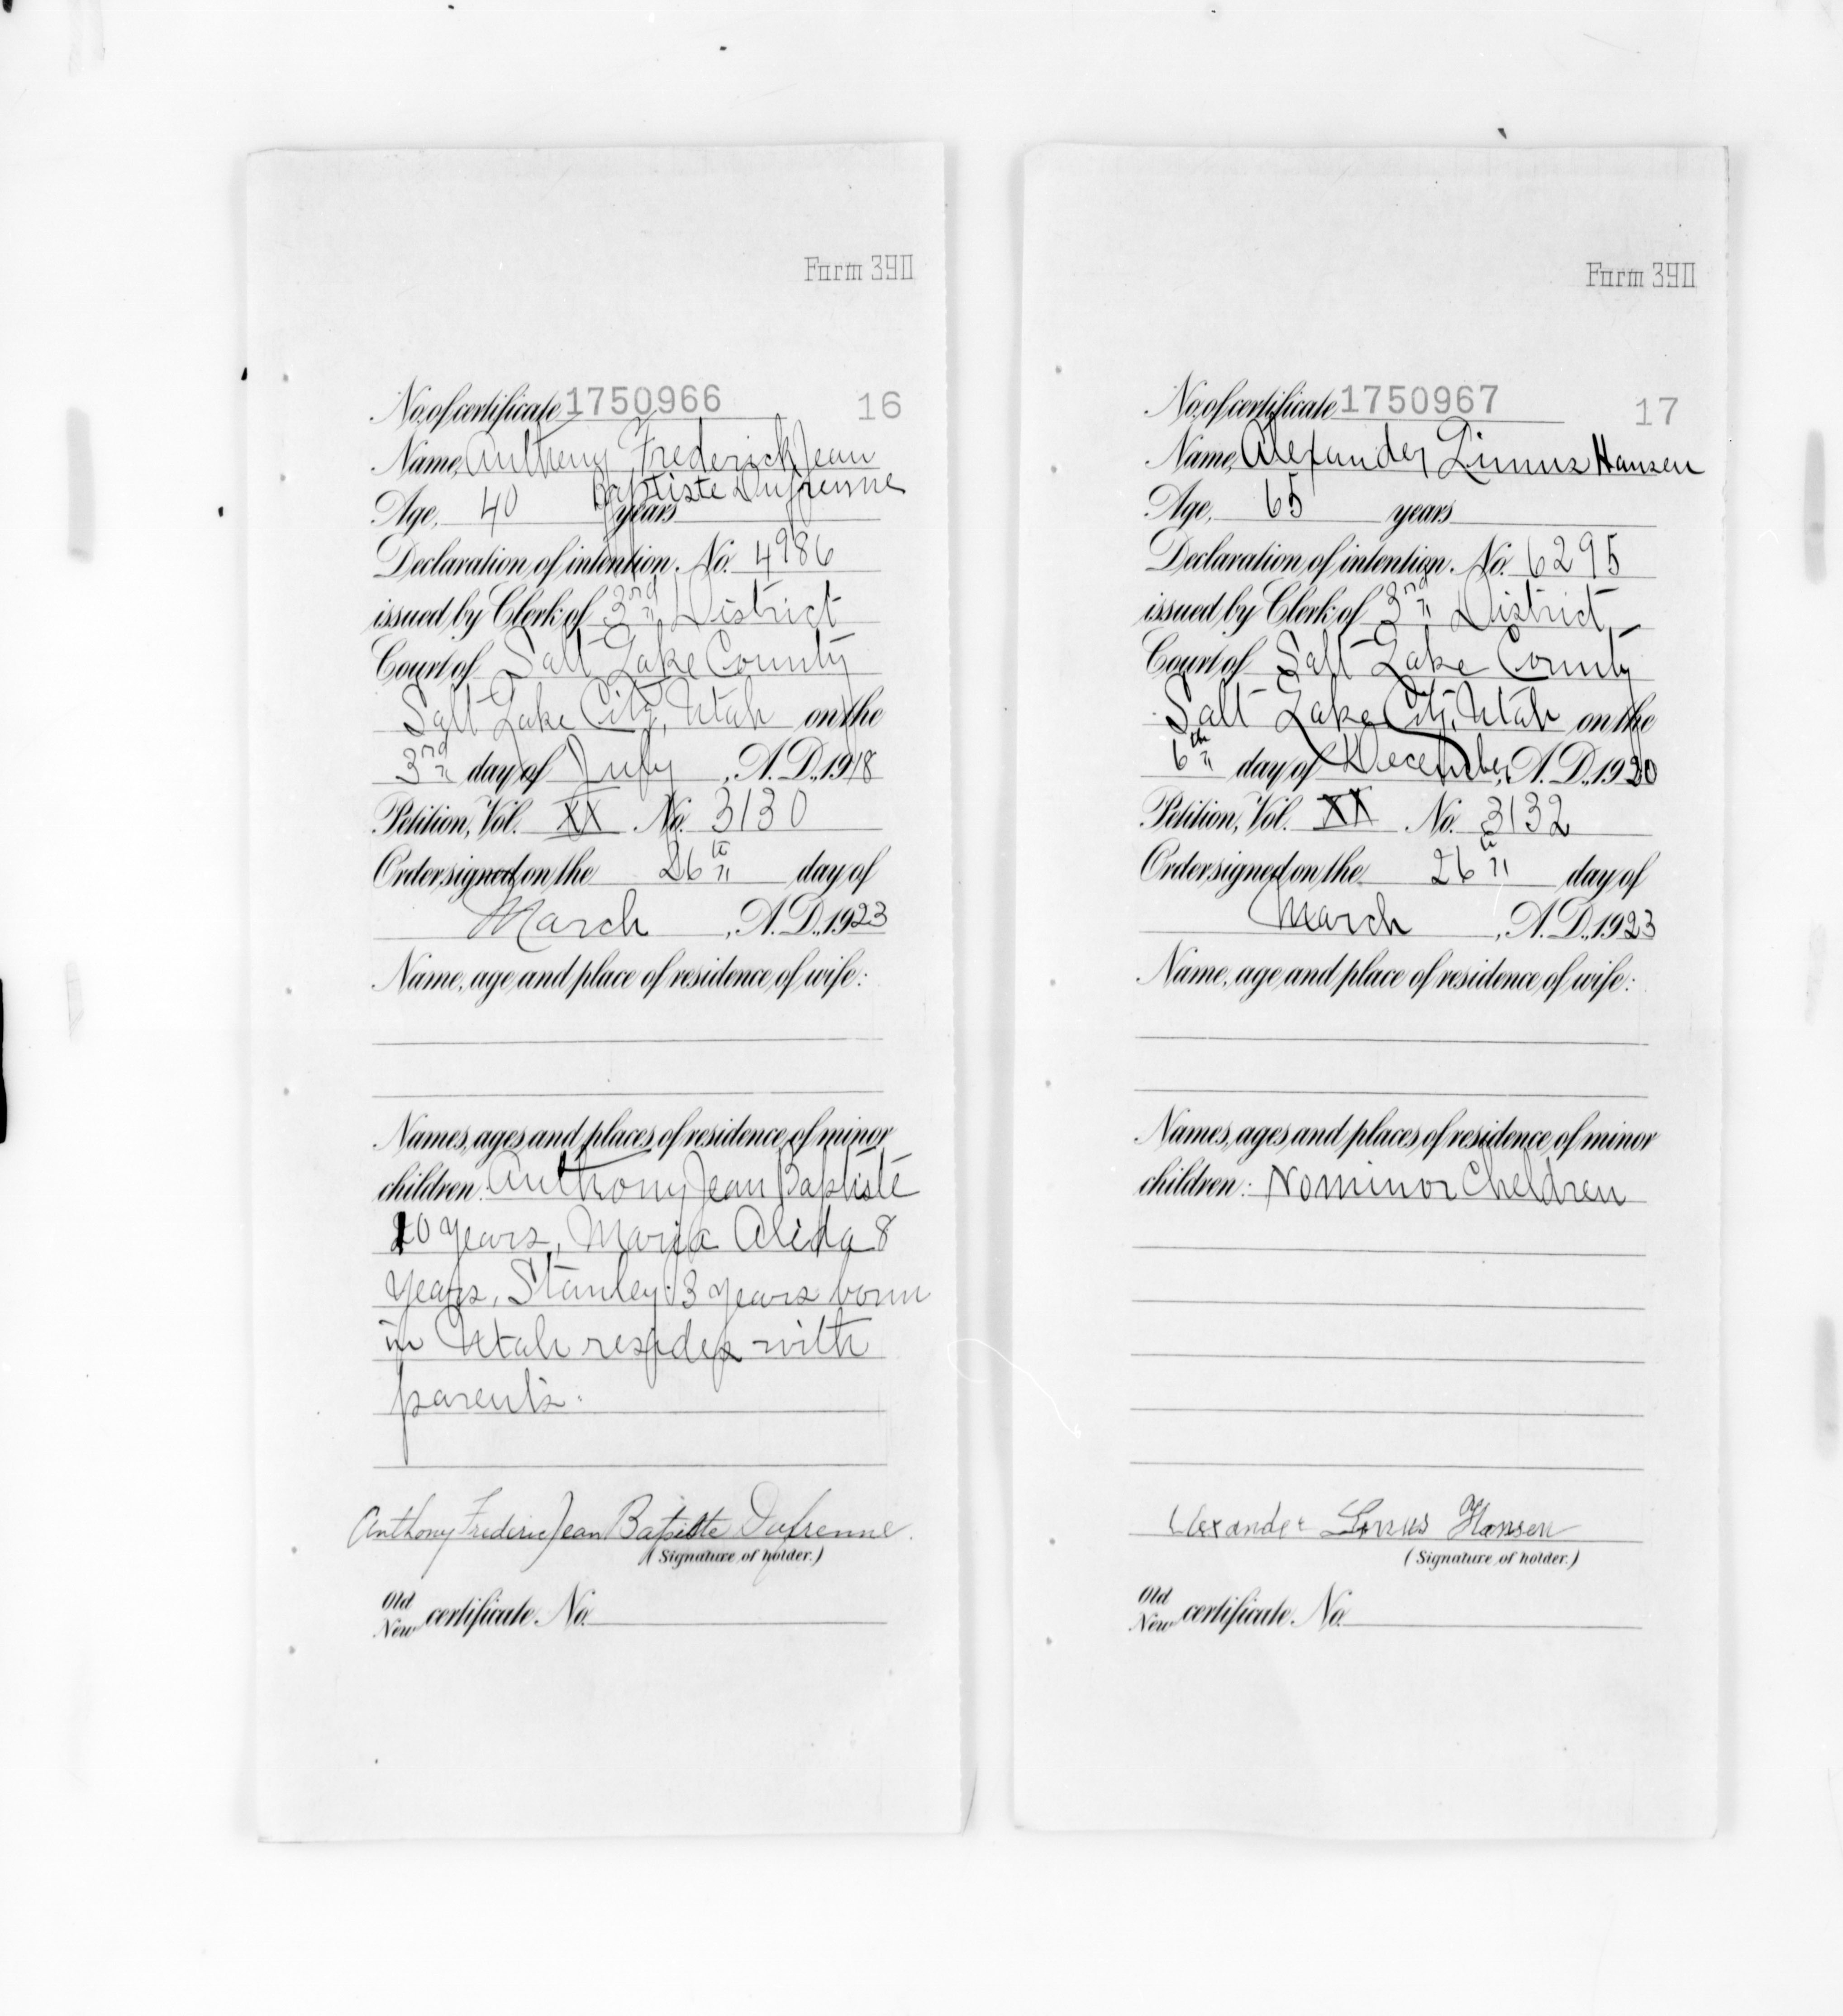 Form 390
No. of certificate 1750966 16
Name, Anthony Frederick Jean
Baptiste Dufrenne
Age, 40 years
Declaration of intention, No. 4986
issued by Clerk of 3rd District
Court of Salt Lake County
Salt Lake City, Utah on the
3rd day of July, A.D., 1918
Petition, Vol. XX No. 3130
Order signed on the 26th day of
March, A.D., 1923
Name, age and place of residence of wife:
Names, ages and places of residence of minor
children: Anthony Jean Baptiste
10 years, Maria Alida 8
years, Stanley 3 years born
in Utah resides with
parents.
Anthony Frederic Jean Baptiste Dufrenne.
(Signature of holder.)
Old
New certificate No.
Form 390
No. of certificate 1750967 17
Name, Alexander Linus Hansen
Age, 65 years
Declaration of intention, No. 6295
issued by Clerk of 3rd District
Court of Salt Lake County
Salt Lake City, Utah on the
6th day of December, A.D., 1920
Petition, Vol. XX No. 3132
Order signed on the 26th day of
March, A.D., 1923
Name, age and place of residence of wife:
Names, ages and places of residence of minor
children: No minor Children
Alexander Linus Hansen
(Signature of holder.)
Old
New certificate No.